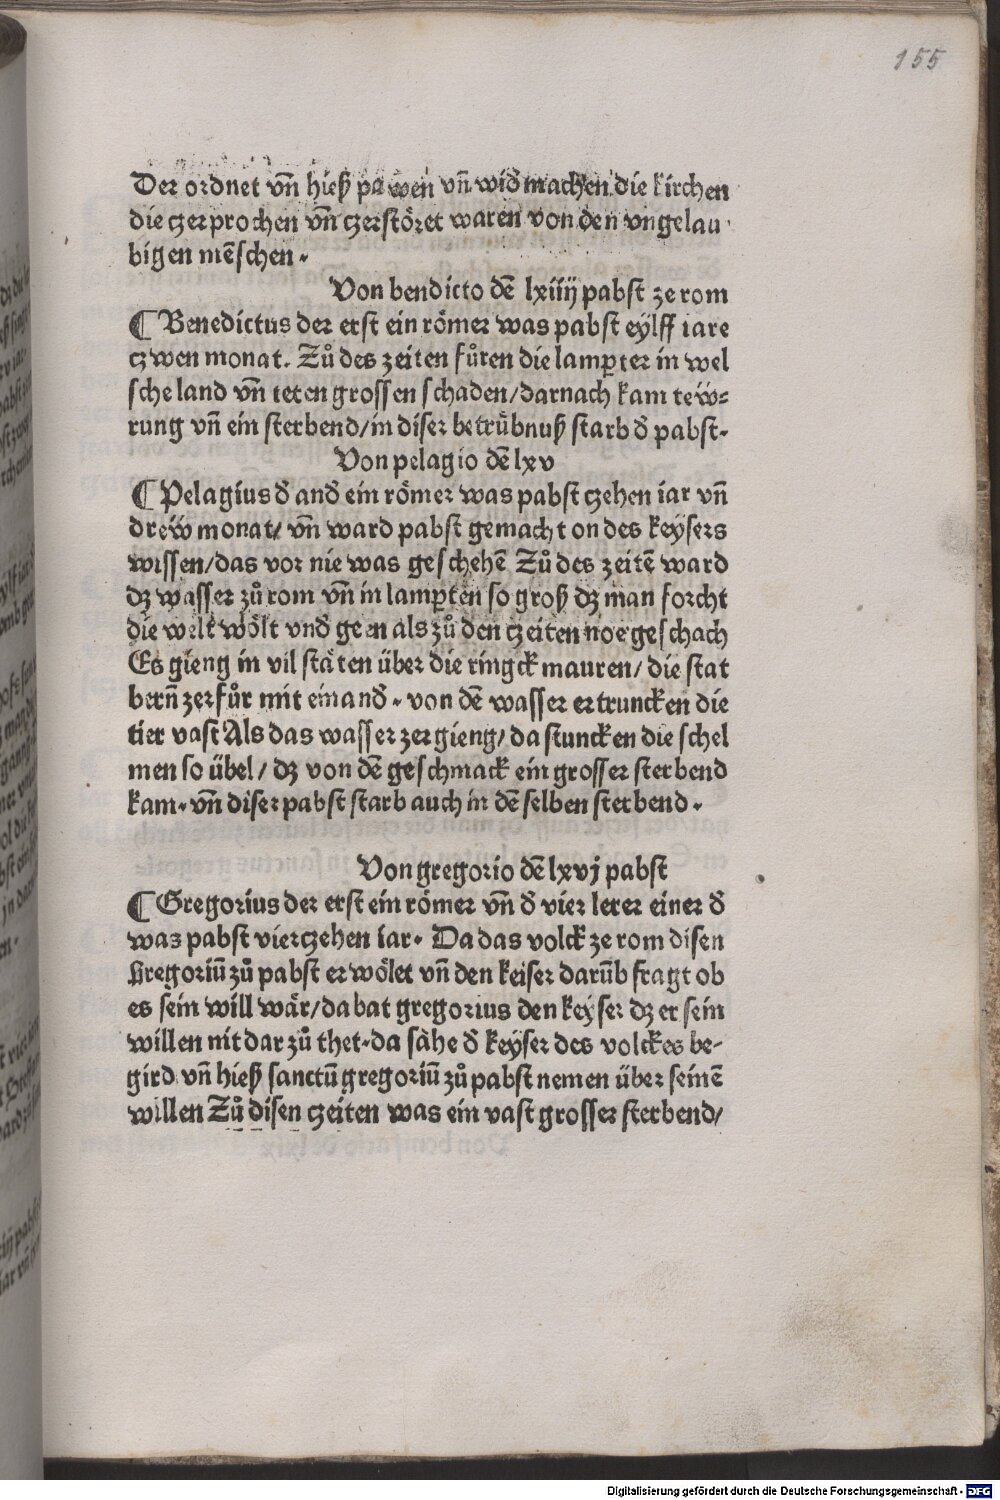 155
Der ordnet vn̄ hieß pawen vn̄ wid̄ machen die kirchen
die czerprochen vn̄ czerstöret waren von den vngelau
bigen mēschen.
Von bendicto dē lxiiij pabst ze rom
¶ Benedictus der erst ein römer was pabst eylff iare
czwen monat. Zů des zeiten fůren die lamꝑter in wel
sche land vn̄ teten grossen schaden/darnach kam teẅ⸗
rung vn̄ ein sterbend/in diser betrůbnuß starb d̄ pabst.
Von pelagio dē lxv
¶ Pelagius d̄ and̄ ein römer was pabst czehen iar vn̄
dreẅ monat/ vn̄ ward pabst gemacht on des keysers
wissen/das vor nie was geschehē Zů des zeitē ward
dz wasser zů rom vn̄ in lamꝑten so groß dz man forcht
die welt wölt vnd̄ geen als zů den czeiten noe geschach
Es gieng in vil stäten über die ringck mauren/ die stat
bern̄ zerfůr mit einand̄. von dē wasser ertruncken die
tier vast Als das wasser zergieng/ da stuncken die schel
men so übel/ dz von dē geschmack ein grosser sterbend
kam. vn̄ diser pabst starb auch in dē selben sterbend.
Von gregorio dē lxvj pabst
¶ Gregorius der erst ein römer vn̄ d̄ vier lerer einer d̄
was pabst vierczehen iar. Da das volck ze rom disen
Gregoriū zů pabst erwölet vn̄ den keiser darūb fragt ob
es sein will wär/da bat gregorius den keyser dz er sein
willen nit darzů thet.da sähe d̄ keyser des volckes be-
gird vn̄ hieß sanctū gregoriū zů pabst nemen über seinē
willen Zů disen czeiten was ein vast grosser sterbend/
Digitalisierung gefördert durch die Deutsche Forschungsgemeinschaft - DFG